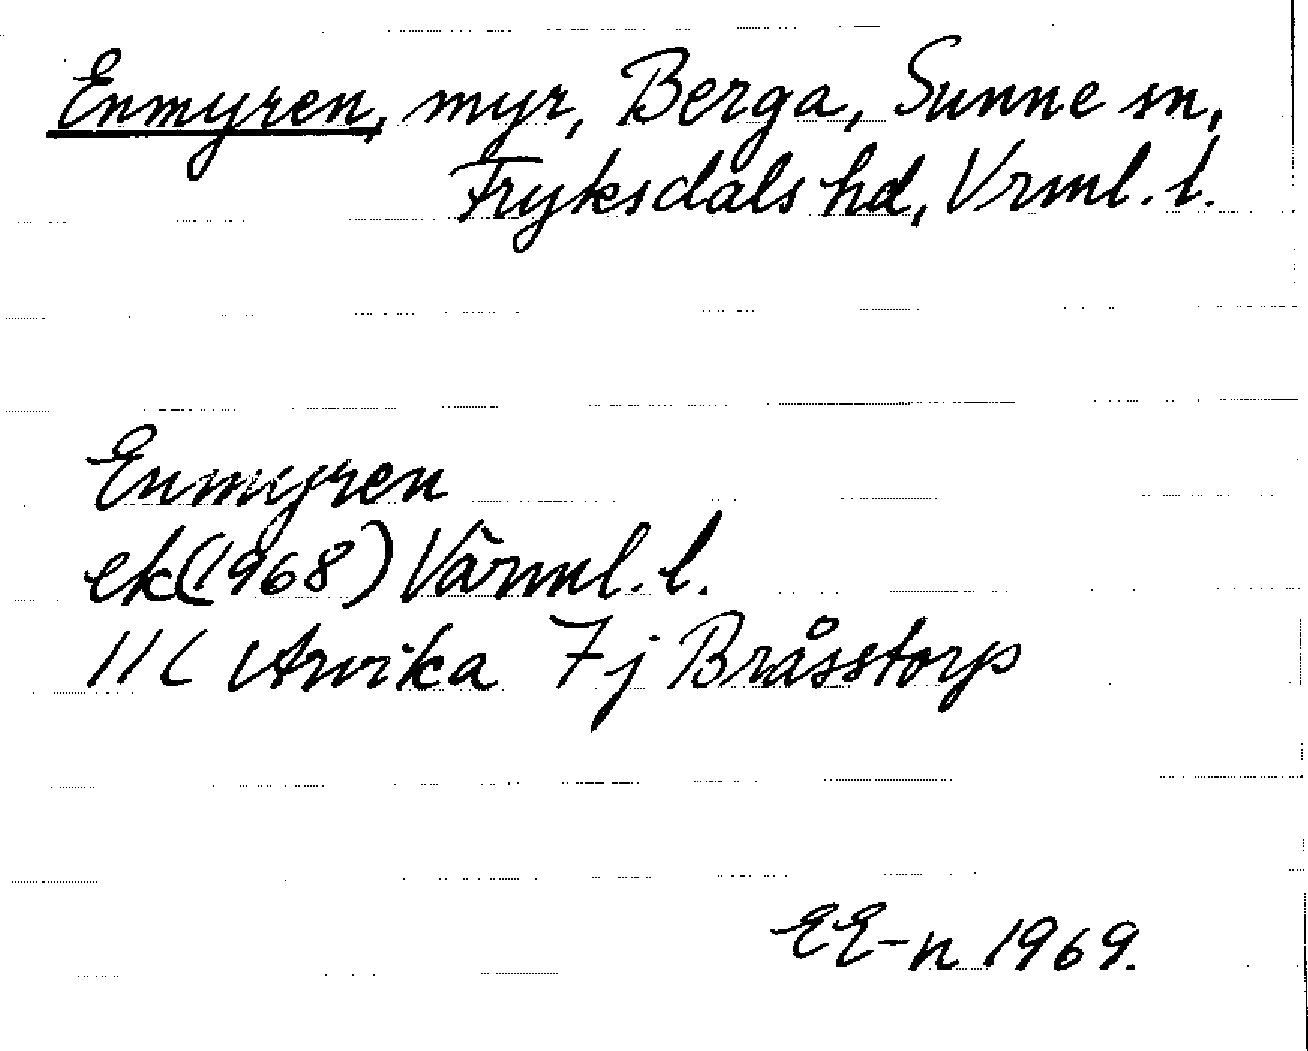 Enmyren, myr, Berga, Sunne sn,
Fryksdals hd, Vrml. l.
Enmyren
ek (1968) Värml. l.
11C Arvika 7j Bråsstorp
EE-n 1969.